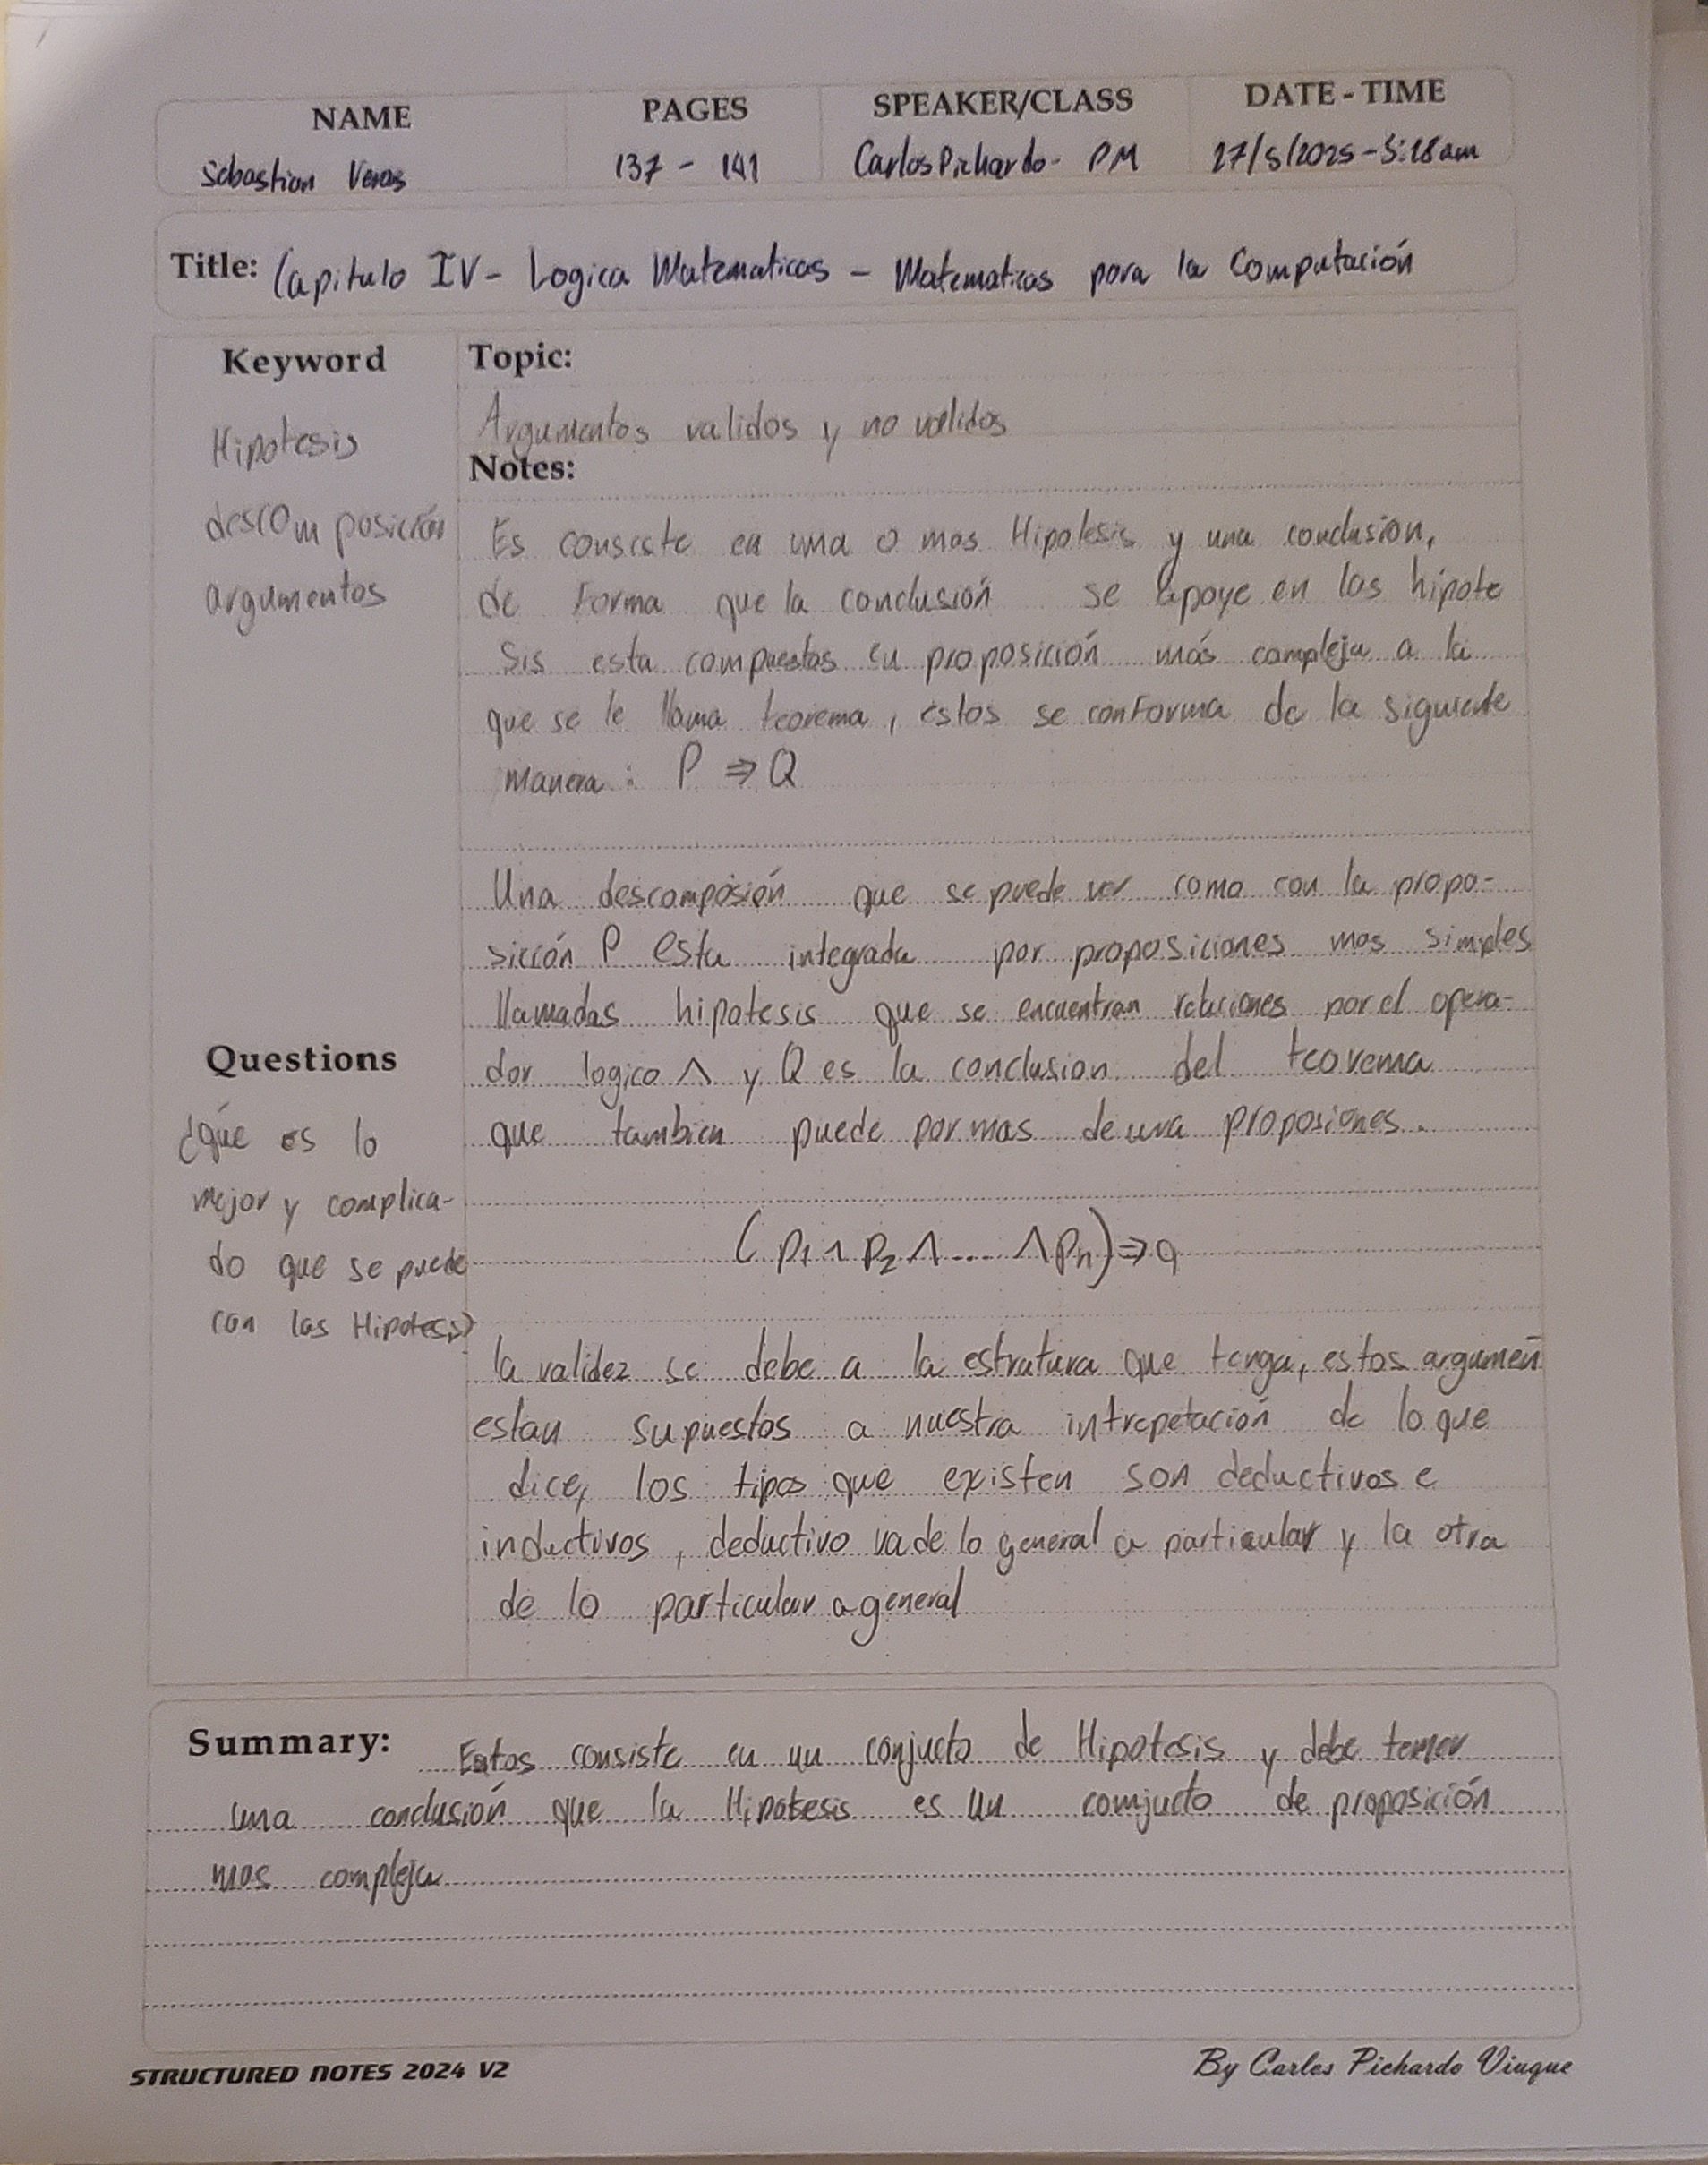 NAME PAGES SPEAKER/CLASS DATE - TIME
Sebastian Veras 137 - 141 Carlos Pichardo - PM 27/5/2025 - 5:18am
Title: Capitulo IV - Logica Matematicas - Matematicas para la Computación
Keyword
Hipotesis
descomposición
argumentos
Topic:
Argumentos validos y no validos
Notes:
Es consiste en una o mas Hipotesis y una conclusión,
de Forma que la conclusión se apoye en las hipote
sis esta compuestas su proposición más compleja a la
que se le llama teorema, estos se conForma de la siguiente
manera : P ⇒ Q
Una descomposión que se puede ver como con la propo-
sición P esta integrada por proposiciones mas simples
llamadas hipotesis que se encuentran relaciones por el opera-
dor logico ∧ y Q es la conclusion del teorema
que tambien puede por mas de una proposiones.
(p1 ∧ p2 ∧ .... ∧ pn) ⇒ q
la validez se debe a la estratura que tenga, estos argumen
estan supuestos a nuestra intrepetación de lo que
dice, los tipos que existen son deductivos e
inductivos, deductivo va de lo general a particular y la otra
de lo particular a general
Questions
¿que es lo
mejor y complica-
do que se puede
con las Hipotesis?
Summary: Estos consiste en un conjucto de Hipotesis y debe tener
una conclusión que la Hipotesis es un comjucto de proposición
mas compleja
STRUCTURED NOTES 2024 V2
By Carlos Pichardo Viuque